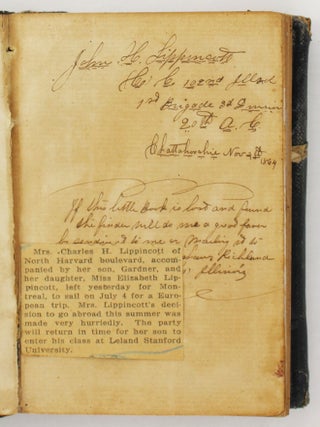 John H. Lippincott
Co E 102nd Illnd
1rd Brigade 3d
20th A. C
Chattahochie Nov 4th 1864
If this little book is lost and found
the finder will do me a good favor
to me or Mailing it to
Richland
Illinoiz
Mrs. Charles H. Lippincott of
North Harvard boulevard, accom-
panied by her son, Gardner, and
her daughter, Miss Elizabeth Lip-
pincott, left yesterday for Mon-
treal, to sail on July 4 for a Euro-
pean trip. Mrs. Lippincott's deci-
sion to go abroad this summer was
made very hurriedly. The party
will return in time for her son to
enter his class at Leland Stanford
University.